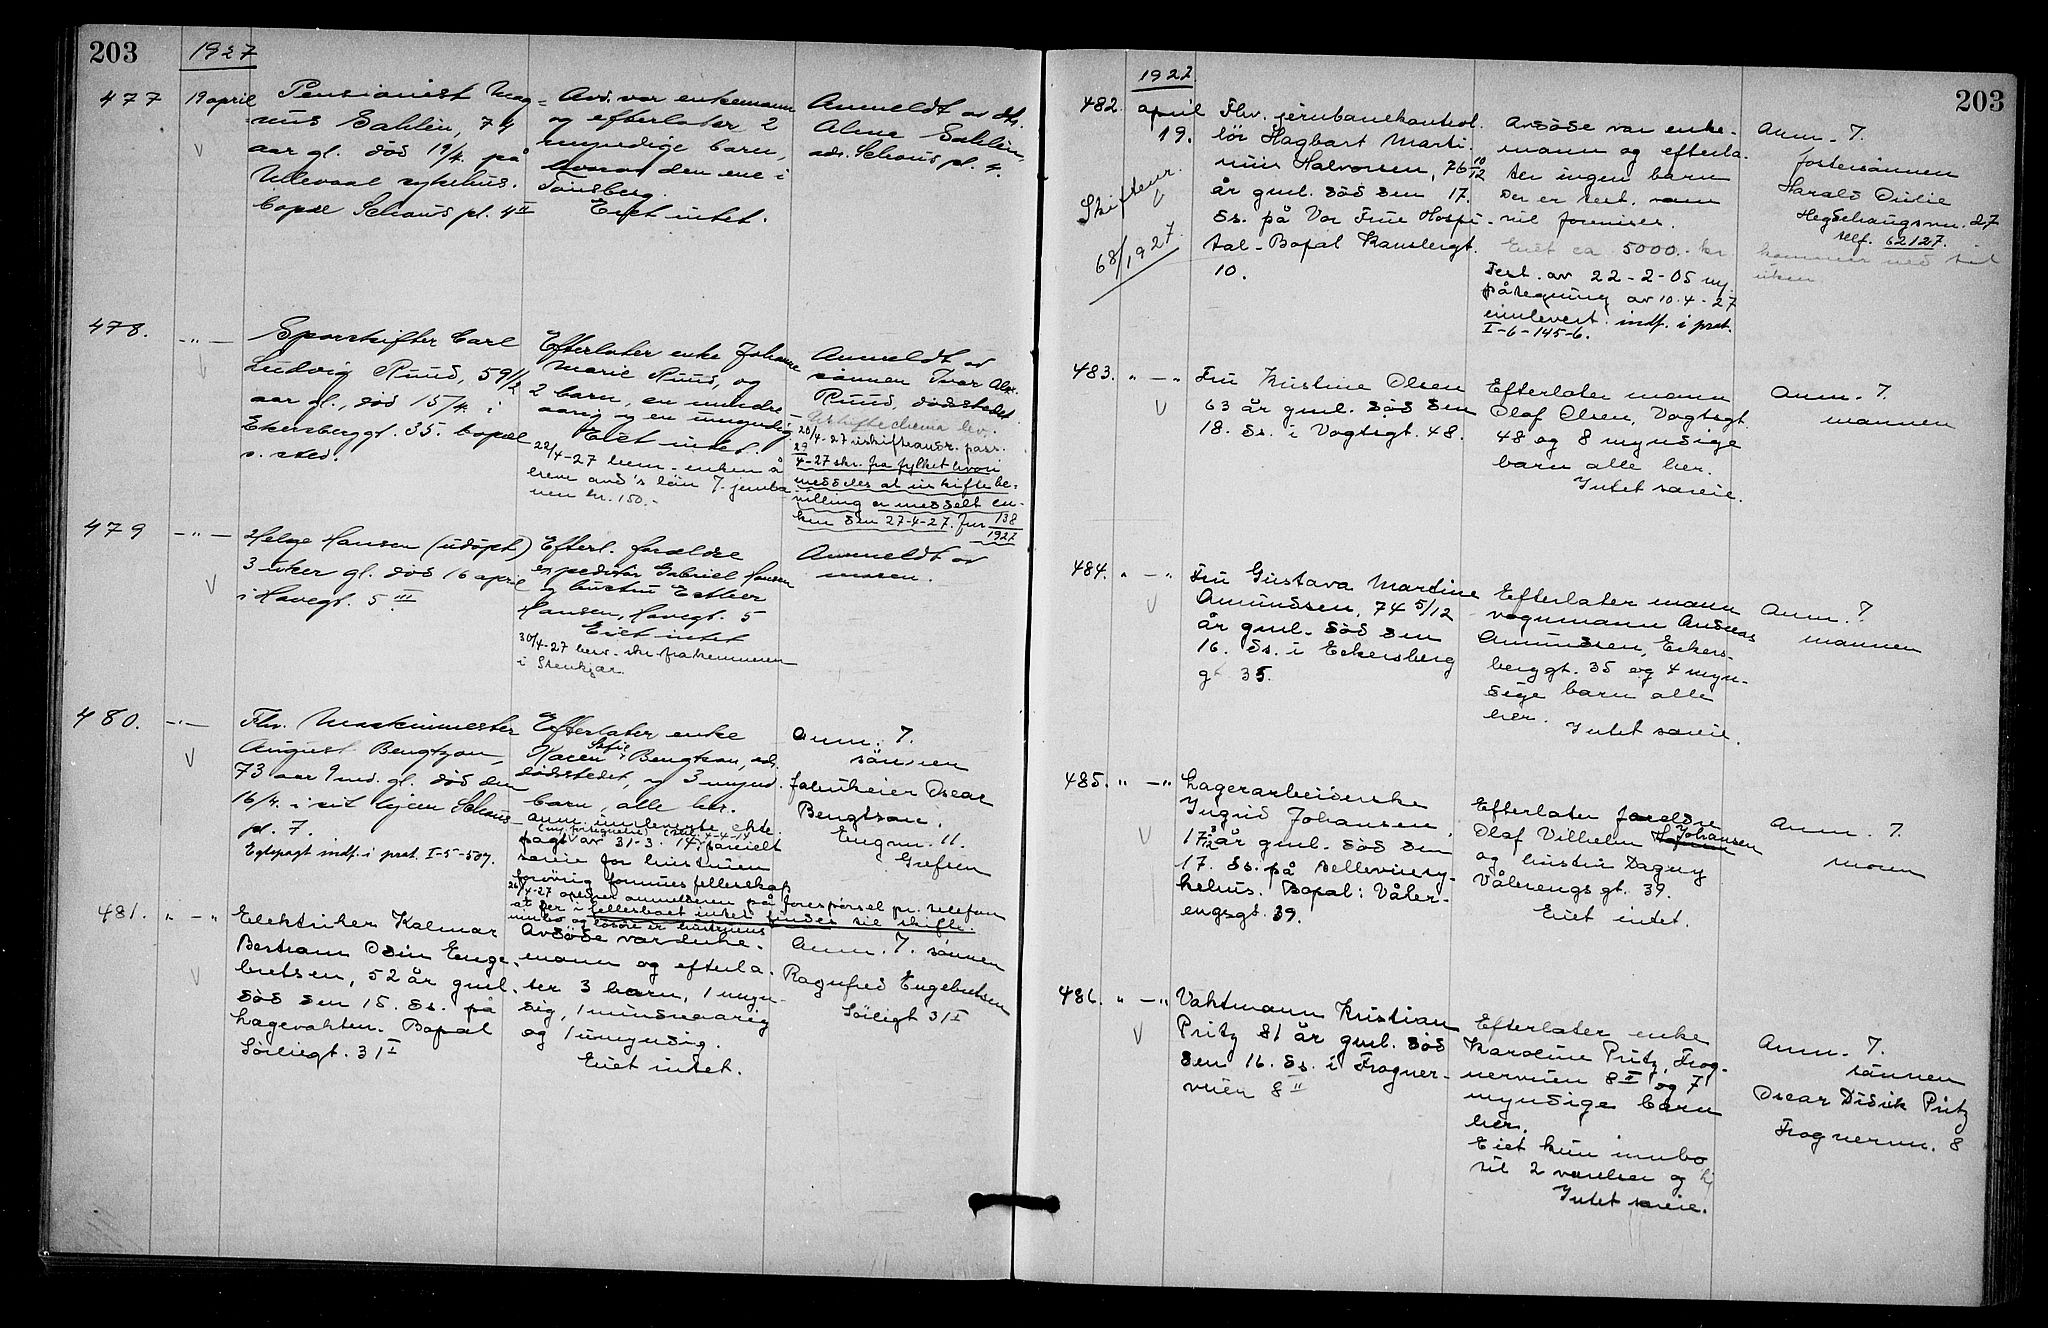 203
1927
477
19 april
Pensionist Mag=
nus Sahlin, 74
aar gl. død 19/4. på
Ullevaal sykehus.
bopæl Schous pl. 4 II
Avd. var enkemann
og efterlater 2
myndige barn,
hvorav den ene i
Tønsberg.
Eiet intet.
Anmeldt av dtr.
Sahlin,
adr. Schous pl. 4.
478.
— " —
Sporskifter Carl
Ludvig Ruud, 59 1/2
aar gl., død 15/4. i
Ekersberggt. 35. bopæl
s. sted.
Efterlater enke Johanne
Marie Ruud, og
2 barn, en mindre-
aarig og en umyndig.
Eiet intet.
22/4-27 bem. enken å
heve avd's løn f. jernba
nen kr. 150.-
Anmeldt av
sønnen Ivar Alx.
Ruud, dødsstedet.
Uskifteskema lev.
20/4-27 uskifteandr. pass.
29
4-27 skr. fra fylket hvori
meddeles at uskiftebe-
villing er meddelt en-
ken den 27-4-27. Jnr 138
1927
479
— " —
Helge Hansen (udøpt)
3 uker gl. død 16 april
i Havegt. 5 III
Efterl. forældre
expeditør Gabriel Hansen
og hustru Esther
Hansen, Havegt. 5
Eiet intet
30/4-27 henv. skr. fra lensmannen
i Stenkjær.
Anmeldt av
moren.
480.
— " —
Fhv. Maskinmester
August Bengtson,
73 aar 9 md. gl. død den
16/4. i sit hjem Schous
pl. 7.
Egtepagt indf. i prot. I-5-507.
Efterlater enke
Sofie
Karen Bengtson, adr.
dødsstedet, og 3 mynd.
barn, alle her.
anm. innleverte ekte-
pagt av 31-3. 14
særeie for hustruen
forøvrig formuesfellesskap
26/4-27 opl. anmelderen på forespørsel pr. telefon
at der i fellesboet intet findes til skifte.
innbo og løsøre er hustruens
Anm. f.
sønnen
Oscar
Bengtson.
Engvn. 11.
Grefsen
481.
" — "
Elektriker Kalmar
Bertram Odin Enge-
bretsen, 52 år gml.
død den 15. ds. på
Lægevakten. Bopæl
Sørligt. 31 I
Avdøde var enke-
mann og efterla-
ter 3 barn, 1 myn-
dig, 1 mindreaarig
og 1 umyndig.
Eiet intet.
Anm. f. sønnen
Ragnfred Engebretsen
Sørligt 31 I
203
1927
482.
april
19.
Skiftevr.
68/1927
Fhv. jernbanekontrol-
lør Hagbart Marti-
nius Halvorsen, 76 10/12
år gml. død den 17.
ds. på Vor Frue Hospi-
tal - Bopæl Kamsbergt.
10.
Avdøde var enke-
mann og efterla-
ter ingen barn
Der er test. som
vil formines.
Eiet ca 5000.- kr
Test. av 22-2-05 m.
påtegning av 10.4-27
innlevert. indf. i prot.
I-6-145-6.
Anm. f.
fostersønnen
Harald
Hegdehaugsvn. 27
telf. 62127.
kommer ned
uken
483.
" — "
Fru Kristine Olsen
63 år gml. død den
18. ds. i Vogtsgt. 48.
Efterlater mann
Olaf Olsen, Vogtsgt.
48 og 8 myndige
barn alle her.
Intet særeie.
Anm. f.
mannen
484.
" — "
Fru Gustava Martine
Amundsen, 74 5/12
år gml. død den
16. ds. i Eckersberg
gt 35.
Efterlater mann
vognmann Andreas
Amundsen, Eckers-
berggt. 35 og 4 myn-
dige barn alle
her.
Intet særeie.
Anm. f.
mannen
485.
" — "
Lagerarbeiderske
Ingrid Johansen,
17 3/12 år gml. død den
17. ds. på Bellevuesy-
kehus. Bopæl: Våler-
engsgt. 39.
Efterlater foreldre
Johansen
Olaf Vilhelm
og hustru Dagny
Vålerengsgt. 39.
Eiet intet.
Anm. f.
moren
486.
" — "
Vaktmann Kristian
Pritz 81 år gml. død
den 16. ds. i Frogner-
veien 8 II
Efterlater enke
Karoline Pritz, Frog-
nerveien 8 II og 7
myndige barn
her.
Eiet kun innbo
til 2 værelser og kj
Intet særeie.
Anm. f.
sønnen
Oscar Didrik Pritz
Frognervn. 8